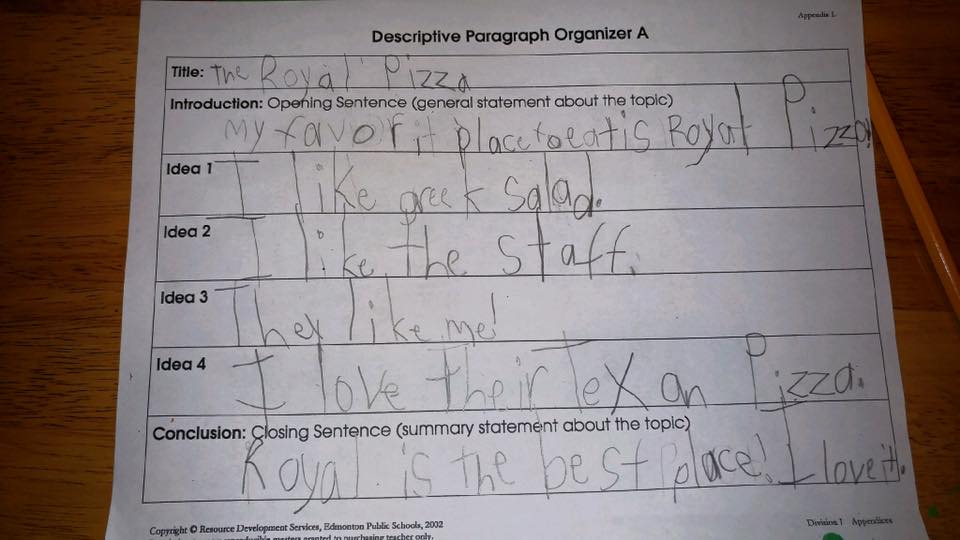 Appendix L
Descriptive Paragraph Organizer A
Title: The Royal Pizza
Introduction: Opening Sentence (general statement about the topic)
My favorit place to eat is Royal Pizza!
Idea 1 I like greek salad.
Idea 2 I like the staff.
Idea 3 They like me!
Idea 4 I love their Texan Pizza.
Conclusion: Closing Sentence (summary statement about the topic)
Royal is the best place! I love it.
Copyright © Resource Development Services, Edmonton Public Schools, 2002
Division I Appendices
reproducible masters granted to purchasing teacher only.